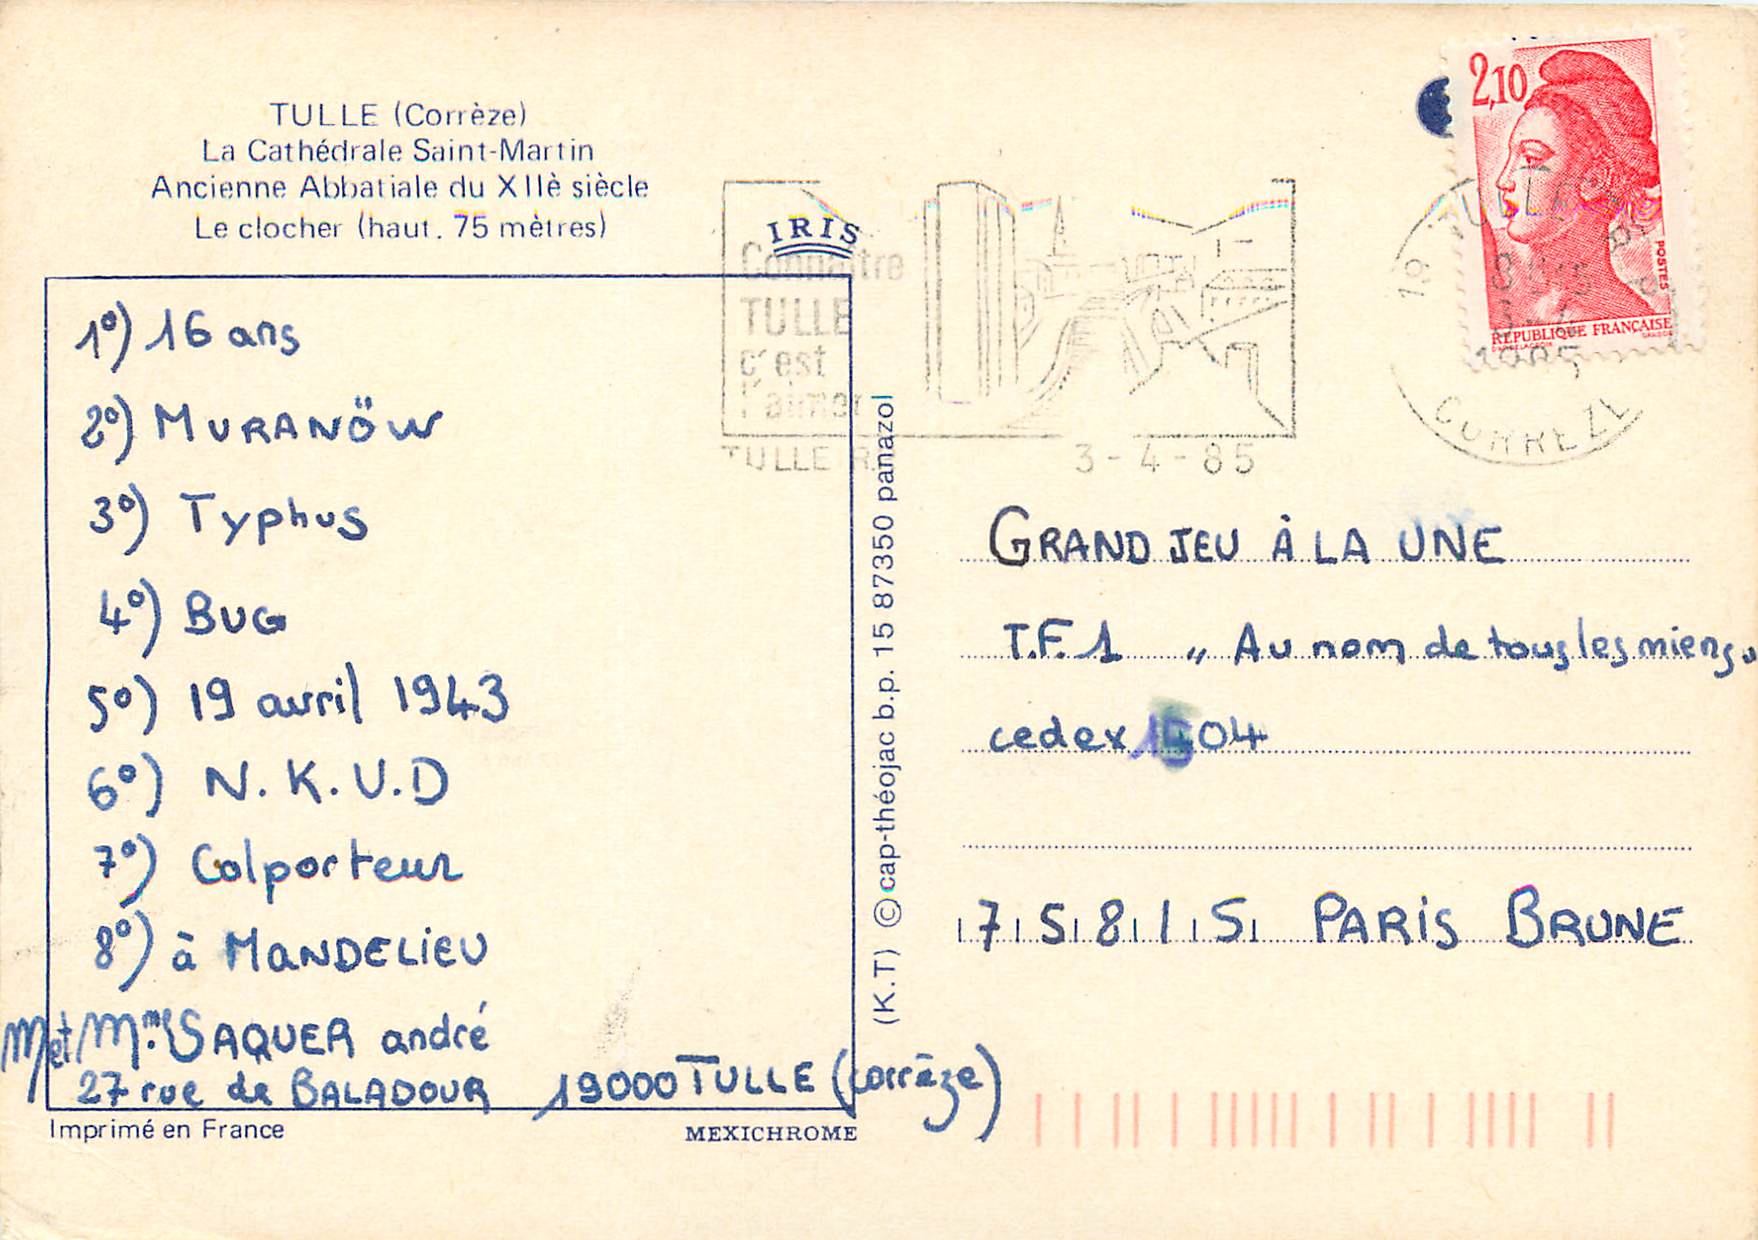 TULLE (Corrèze)
La Cathédrale Saint-Martin
Ancienne Abbatiale du XIIè siècle
Le clocher (haut. 75 mètres)
IRIS
Connaître
TULLE
c'est
l'aimer
TULLE R.P
3-4-85
2,10
POSTES
REPUBLIQUE FRANÇAISE
19 TULLE
1985
CORREZE
1°) 16 ans
2°) MURANÖW
3°) Typhus
4°) BUG
5°) 19 avril 1943
6°) N.K.V.D
7°) Colporteur
8°) à MANDELIEU
M et Mme SAQUER andré
27 rue de BALADOUR 19000 TULLE (corrèze)
Imprimé en France
MEXICHROME
(K.T) © cap-théojac b.p. 15 87350 panazol
GRAND JEU À LA UNE
T.F.1 " Au nom de tous les miens "
cedex 1504
75815 PARIS BRUNE